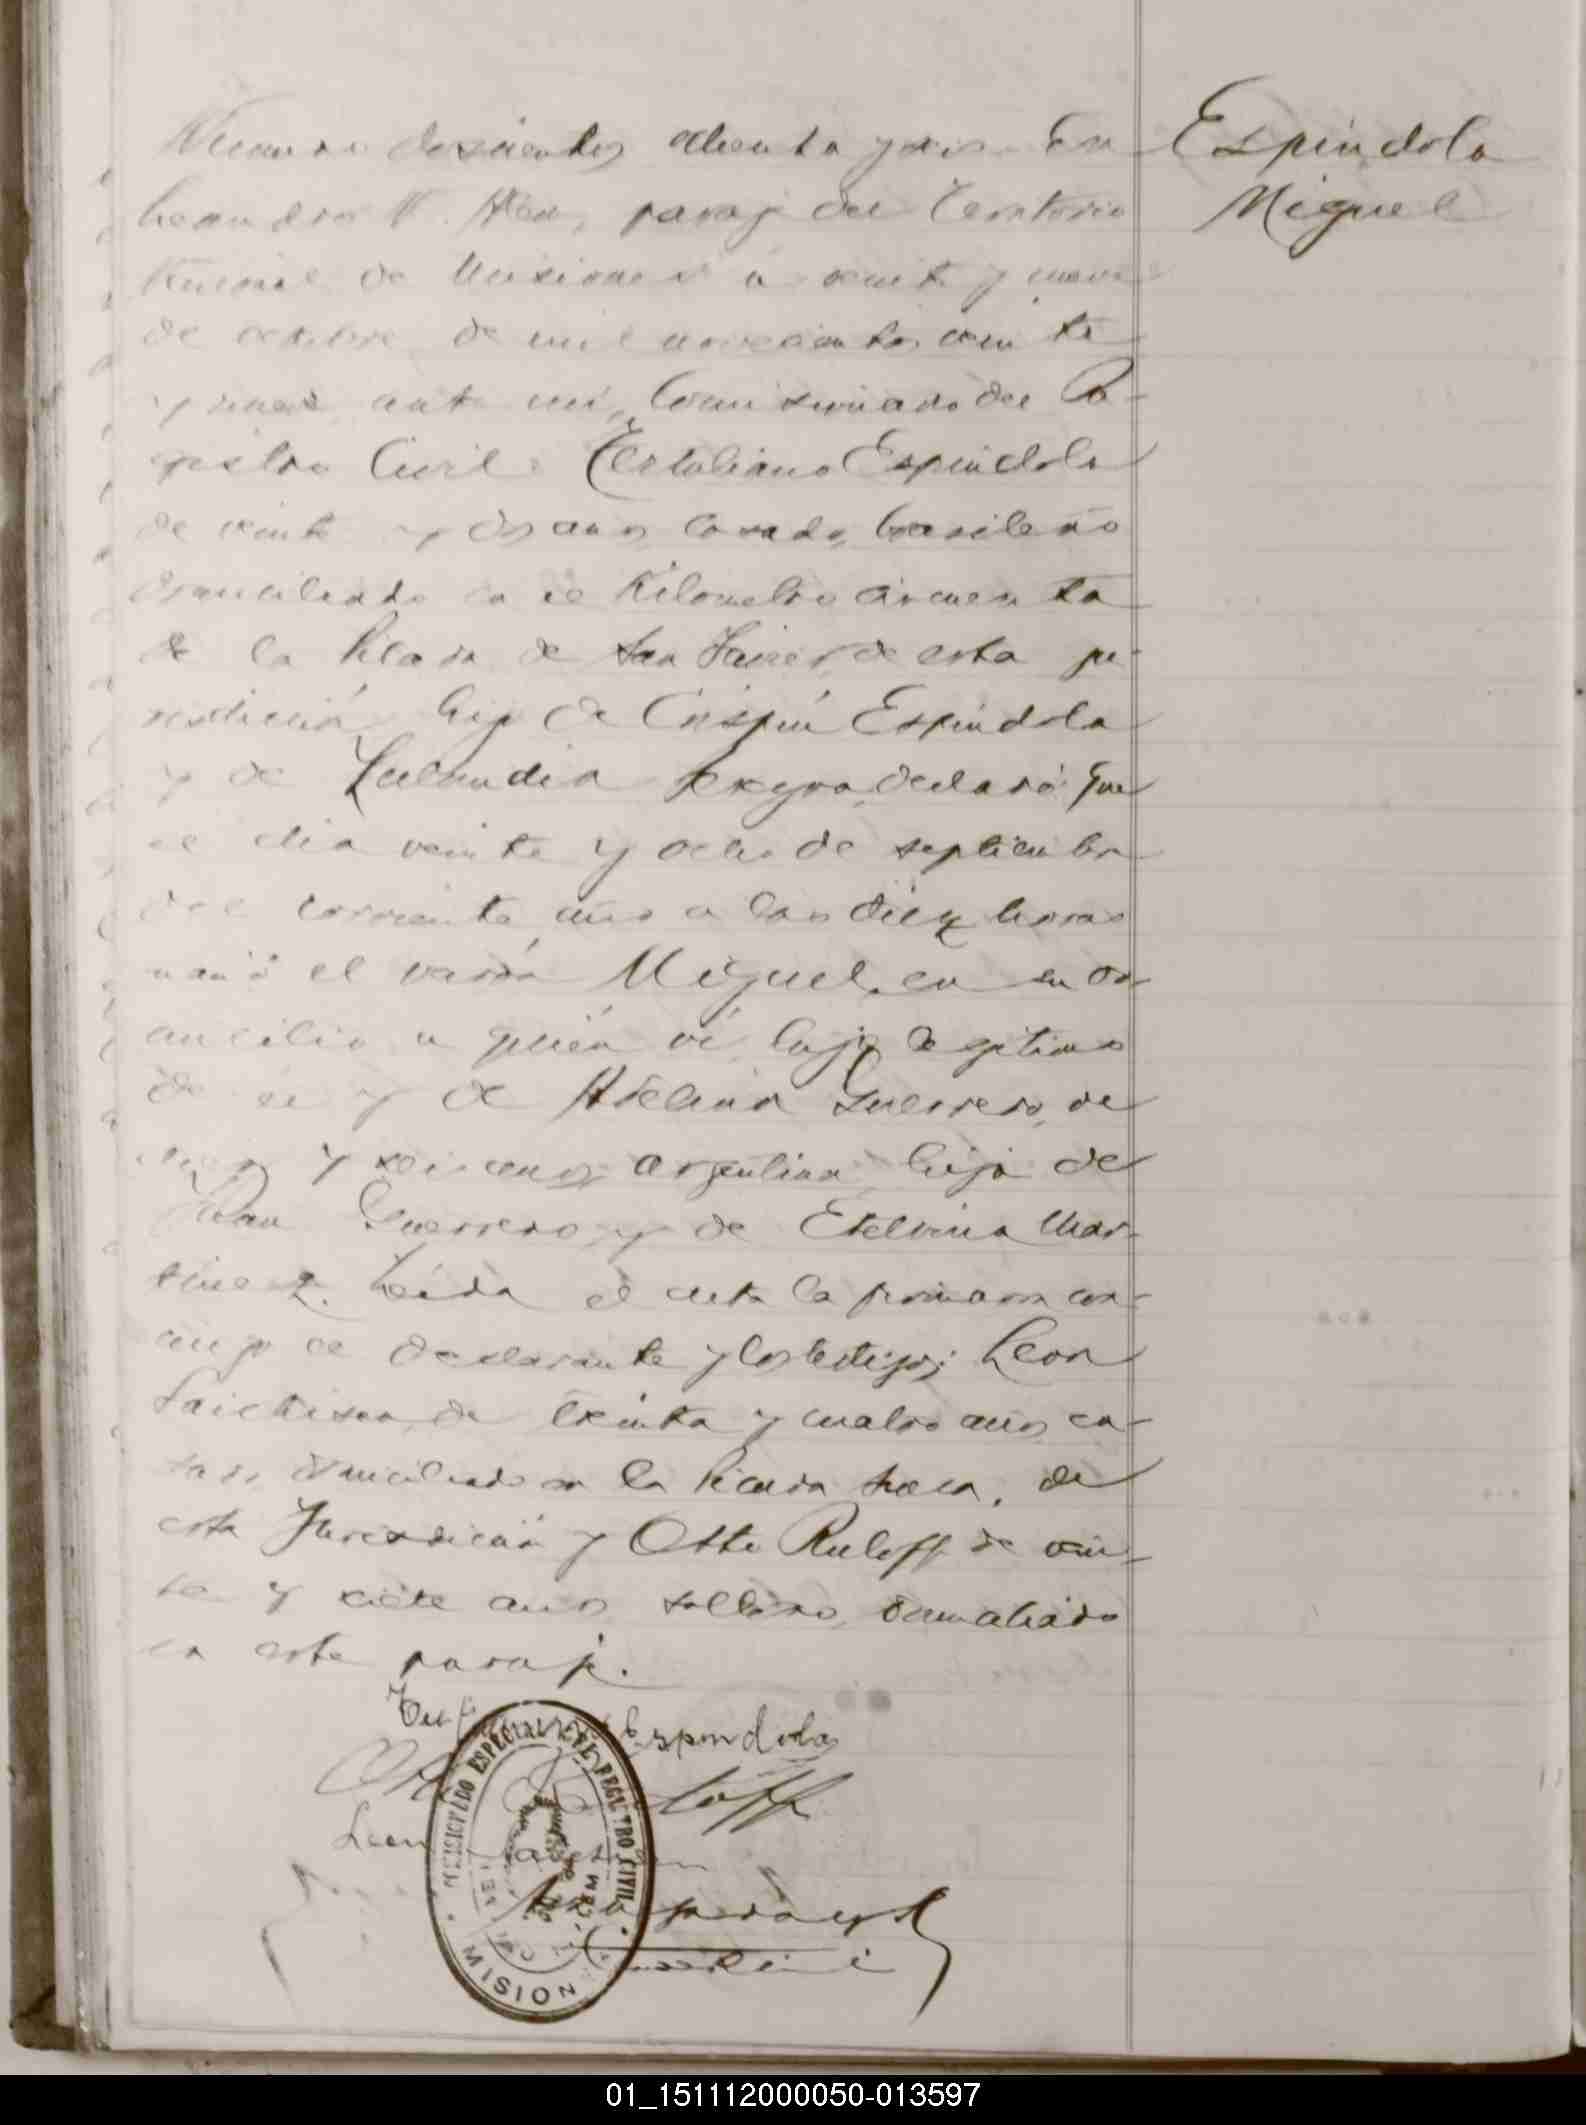 Número doscientos ochenta y seis En
Leandro N. Alem, paraje del Territorio
Nacional de Misiones a veinte y nueve
de octubre de mil novecientos veinte
y nueve ante mi, Comisionado del Re-
gistro Civil Tertuliano Espindola
de veinte y dos años casado, brasileño
domiciliado en el Kilometro cincuenta
de la Picada de San Javier, de esta ju-
risdicción, hijo de Crispín Espíndola
y de declaró que
el dia veinte y ocho de septiembre
del corriente año a las diez horas
nació el varón Miguel, en su do-
micilio a quién ví, hijo legitimo
de él y de Adelina Guerrero, de
y seis años, argentina, hija de
Juan Guerrero y de Etelvina Mar-
tinez. Leída el acta la firmaron con-
migo el declarante y los testigos: Leon
de treinta y cuatro años, ca-
sado, domiciliado en la Picada de
esta Jurisdicción y Otto Ruloff de vein-
te y siete años soltero, domiciliado
en este paraje.
Espindola
Leon
ESPECIAL DEL REGISTRO CIVIL
MISIONES
Espindola
Miguel
01_151112000050-013597